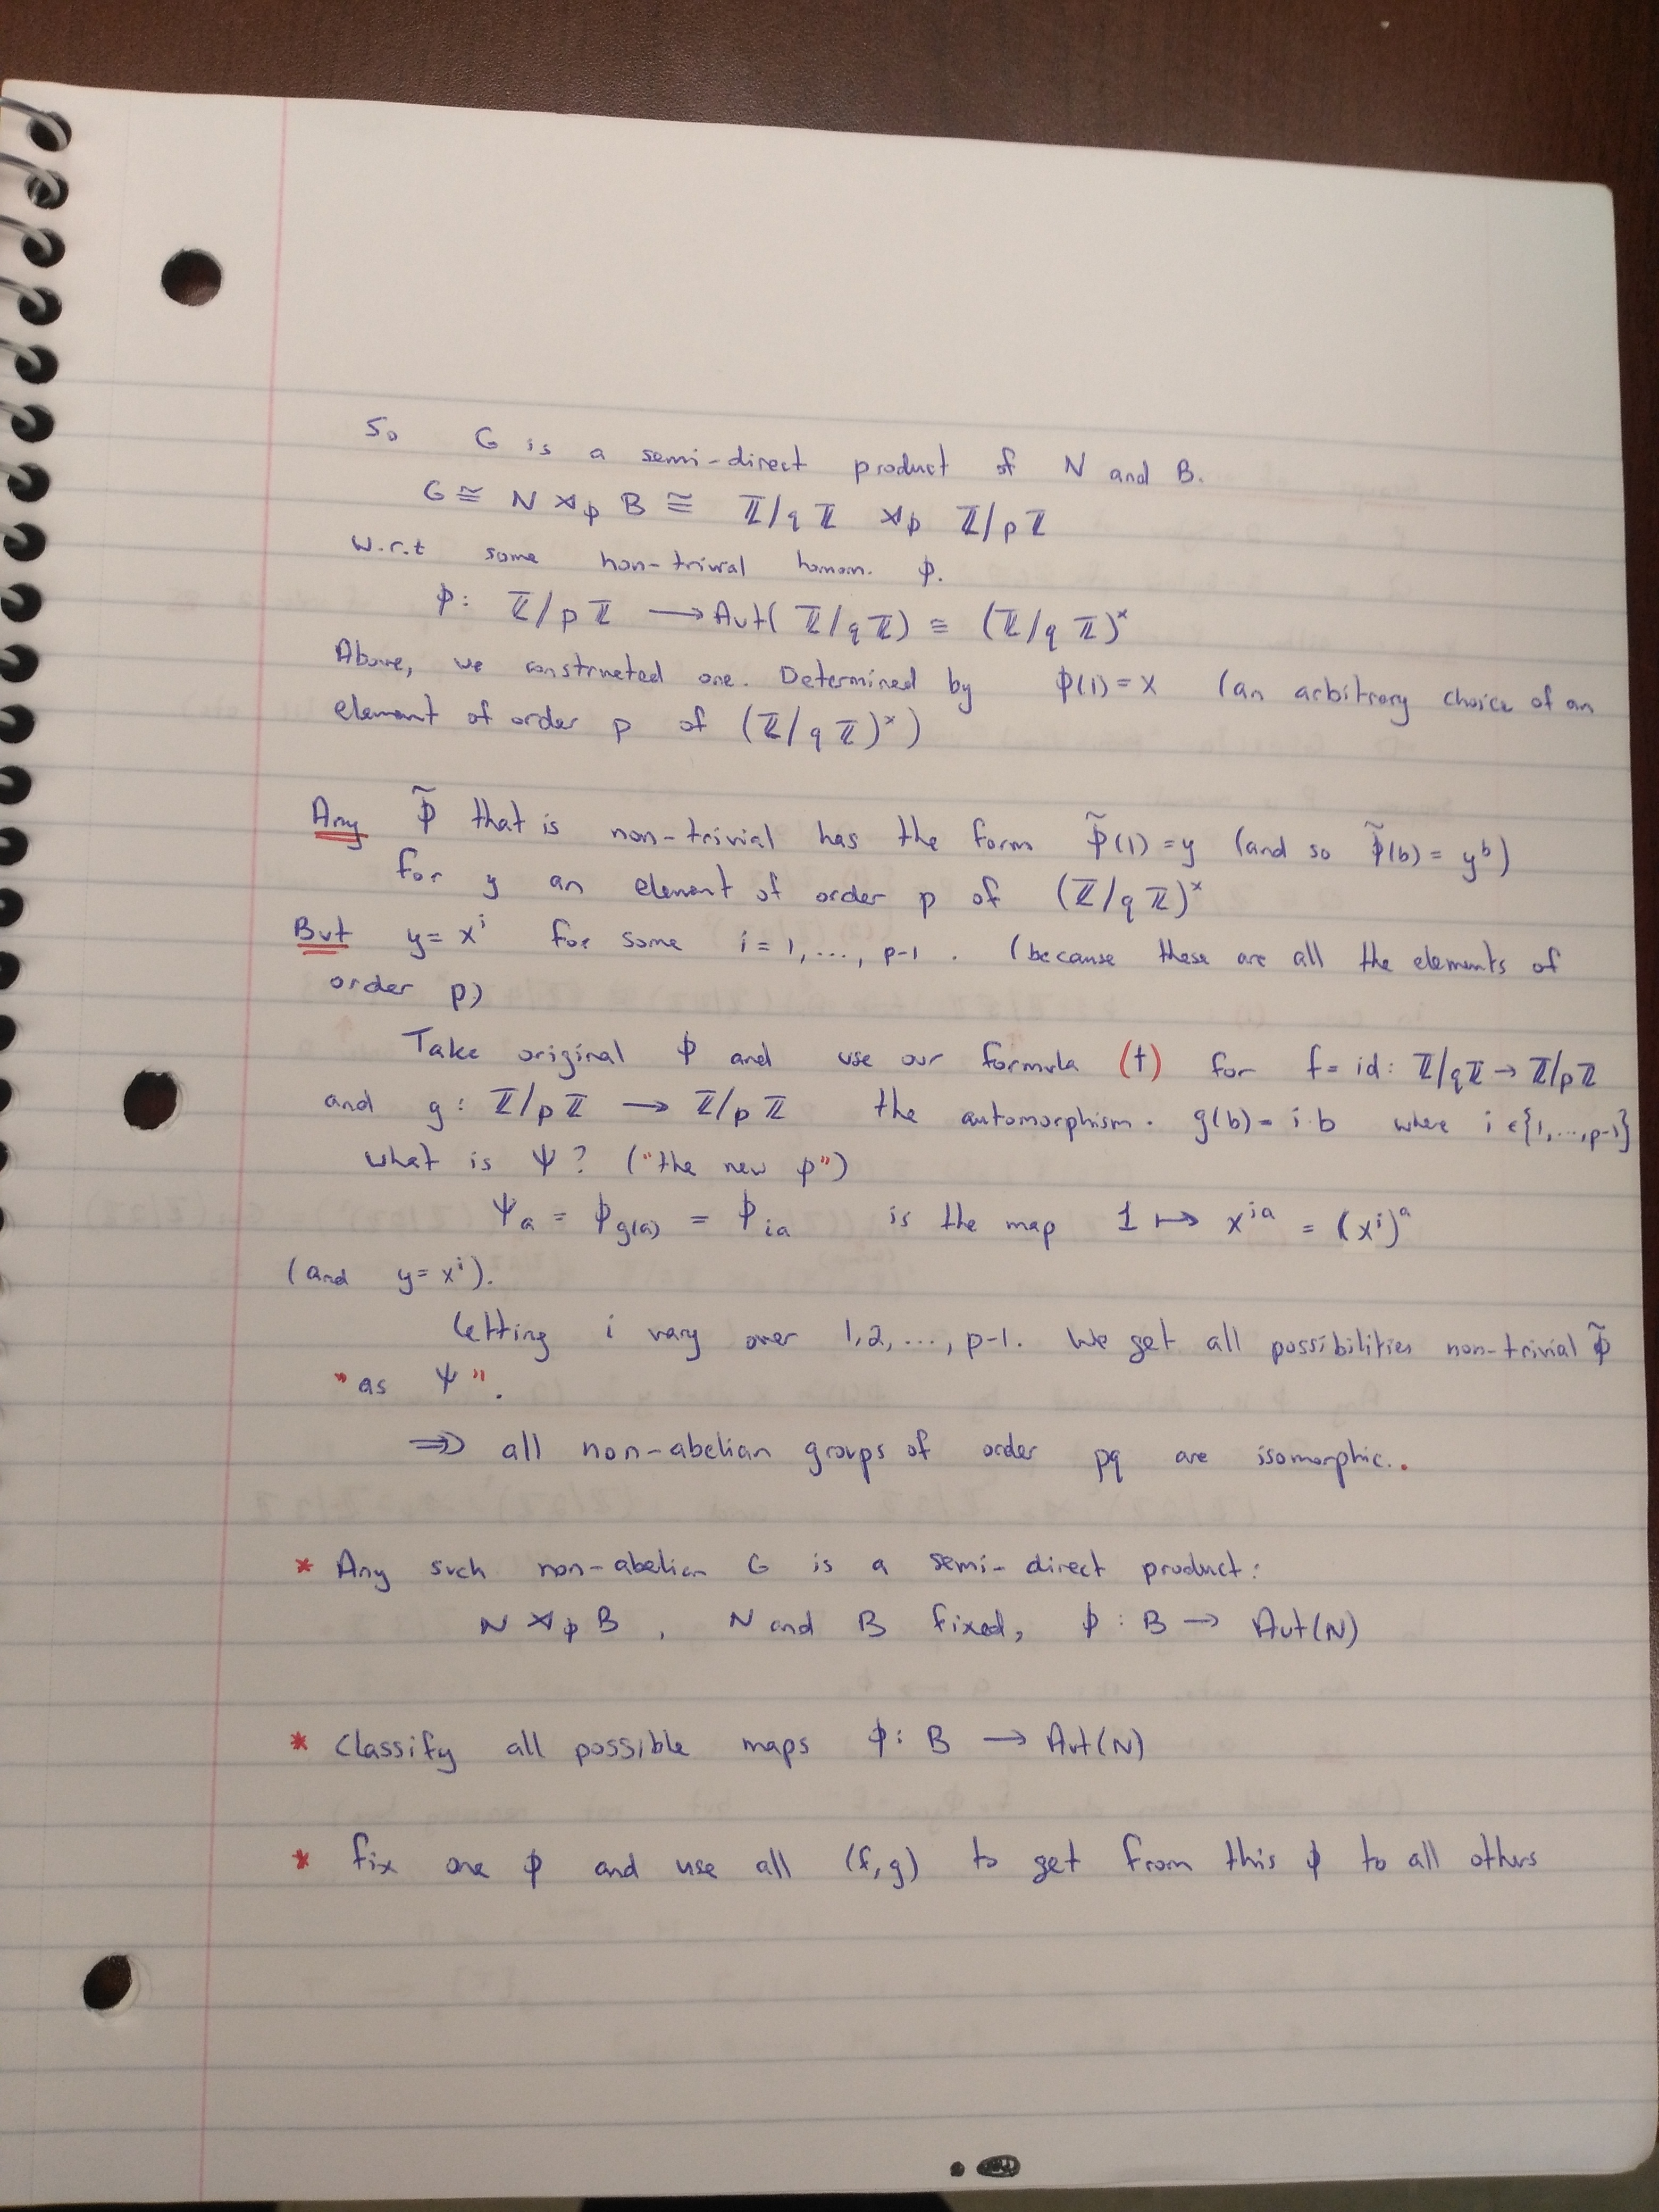 So G is a semi-direct product of N and B.
G ≅ N ⋊ϕ B ≅ ℤ/qℤ ⋊ϕ ℤ/pℤ
w.r.t some non-trivial homom. ϕ.
ϕ: ℤ/pℤ → Aut(ℤ/qℤ) ≅ (ℤ/qℤ)ˣ
Above, we constructed one. Determined by ϕ(1) = x (an arbitrary choice of an
element of order p of (ℤ/qℤ)ˣ)
Any ϕ̃ that is non-trivial has the form ϕ̃(1) = y (and so ϕ̃(b) = yᵇ)
for y an element of order p of (ℤ/qℤ)ˣ
But y = xⁱ for some i = 1, ..., p-1. (because these are all the elements of
order p)
Take original ϕ and use our formula (†) for f = id: ℤ/qℤ → ℤ/pℤ
and g: ℤ/pℤ → ℤ/pℤ the automorphism. g(b) = i·b where i ∈ {1,...,p-1}
what is ψ? ("the new ϕ")
ψₐ = ϕ_g(a) = ϕ_ia is the map 1 ↦ xⁱᵃ = (xⁱ)ᵃ
(and y = xⁱ).
letting i vary over 1,2, ..., p-1. We get all possibilities non-trivial ϕ̃
"as ψ".
⇒ all non-abelian groups of order pq are isomorphic..
* Any such non-abelian G is a semi-direct product:
N ⋊ϕ B, N and B fixed, ϕ: B → Aut(N)
* classify all possible maps ϕ: B → Aut(N)
* fix one ϕ and use all (f,g) to get from this ϕ to all others